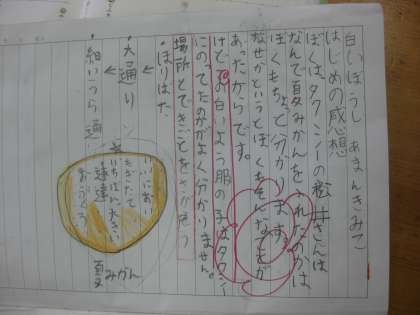 白いぼうし あまんきみこ
はじめの感想
ぼくはタクシーの松井さんは
なんで夏みかんを
ぼくもちょっと分かります。
なぜかというとぼくも
あったからです。
けど、お白いよう服の子はタクシー
にのってたのがよく分かりません。
場所とできごとをさがそう
ほりばた
大通り
細いうら通り
いいにおい
いちばん大きい
速達
おふくろ
夏みかん